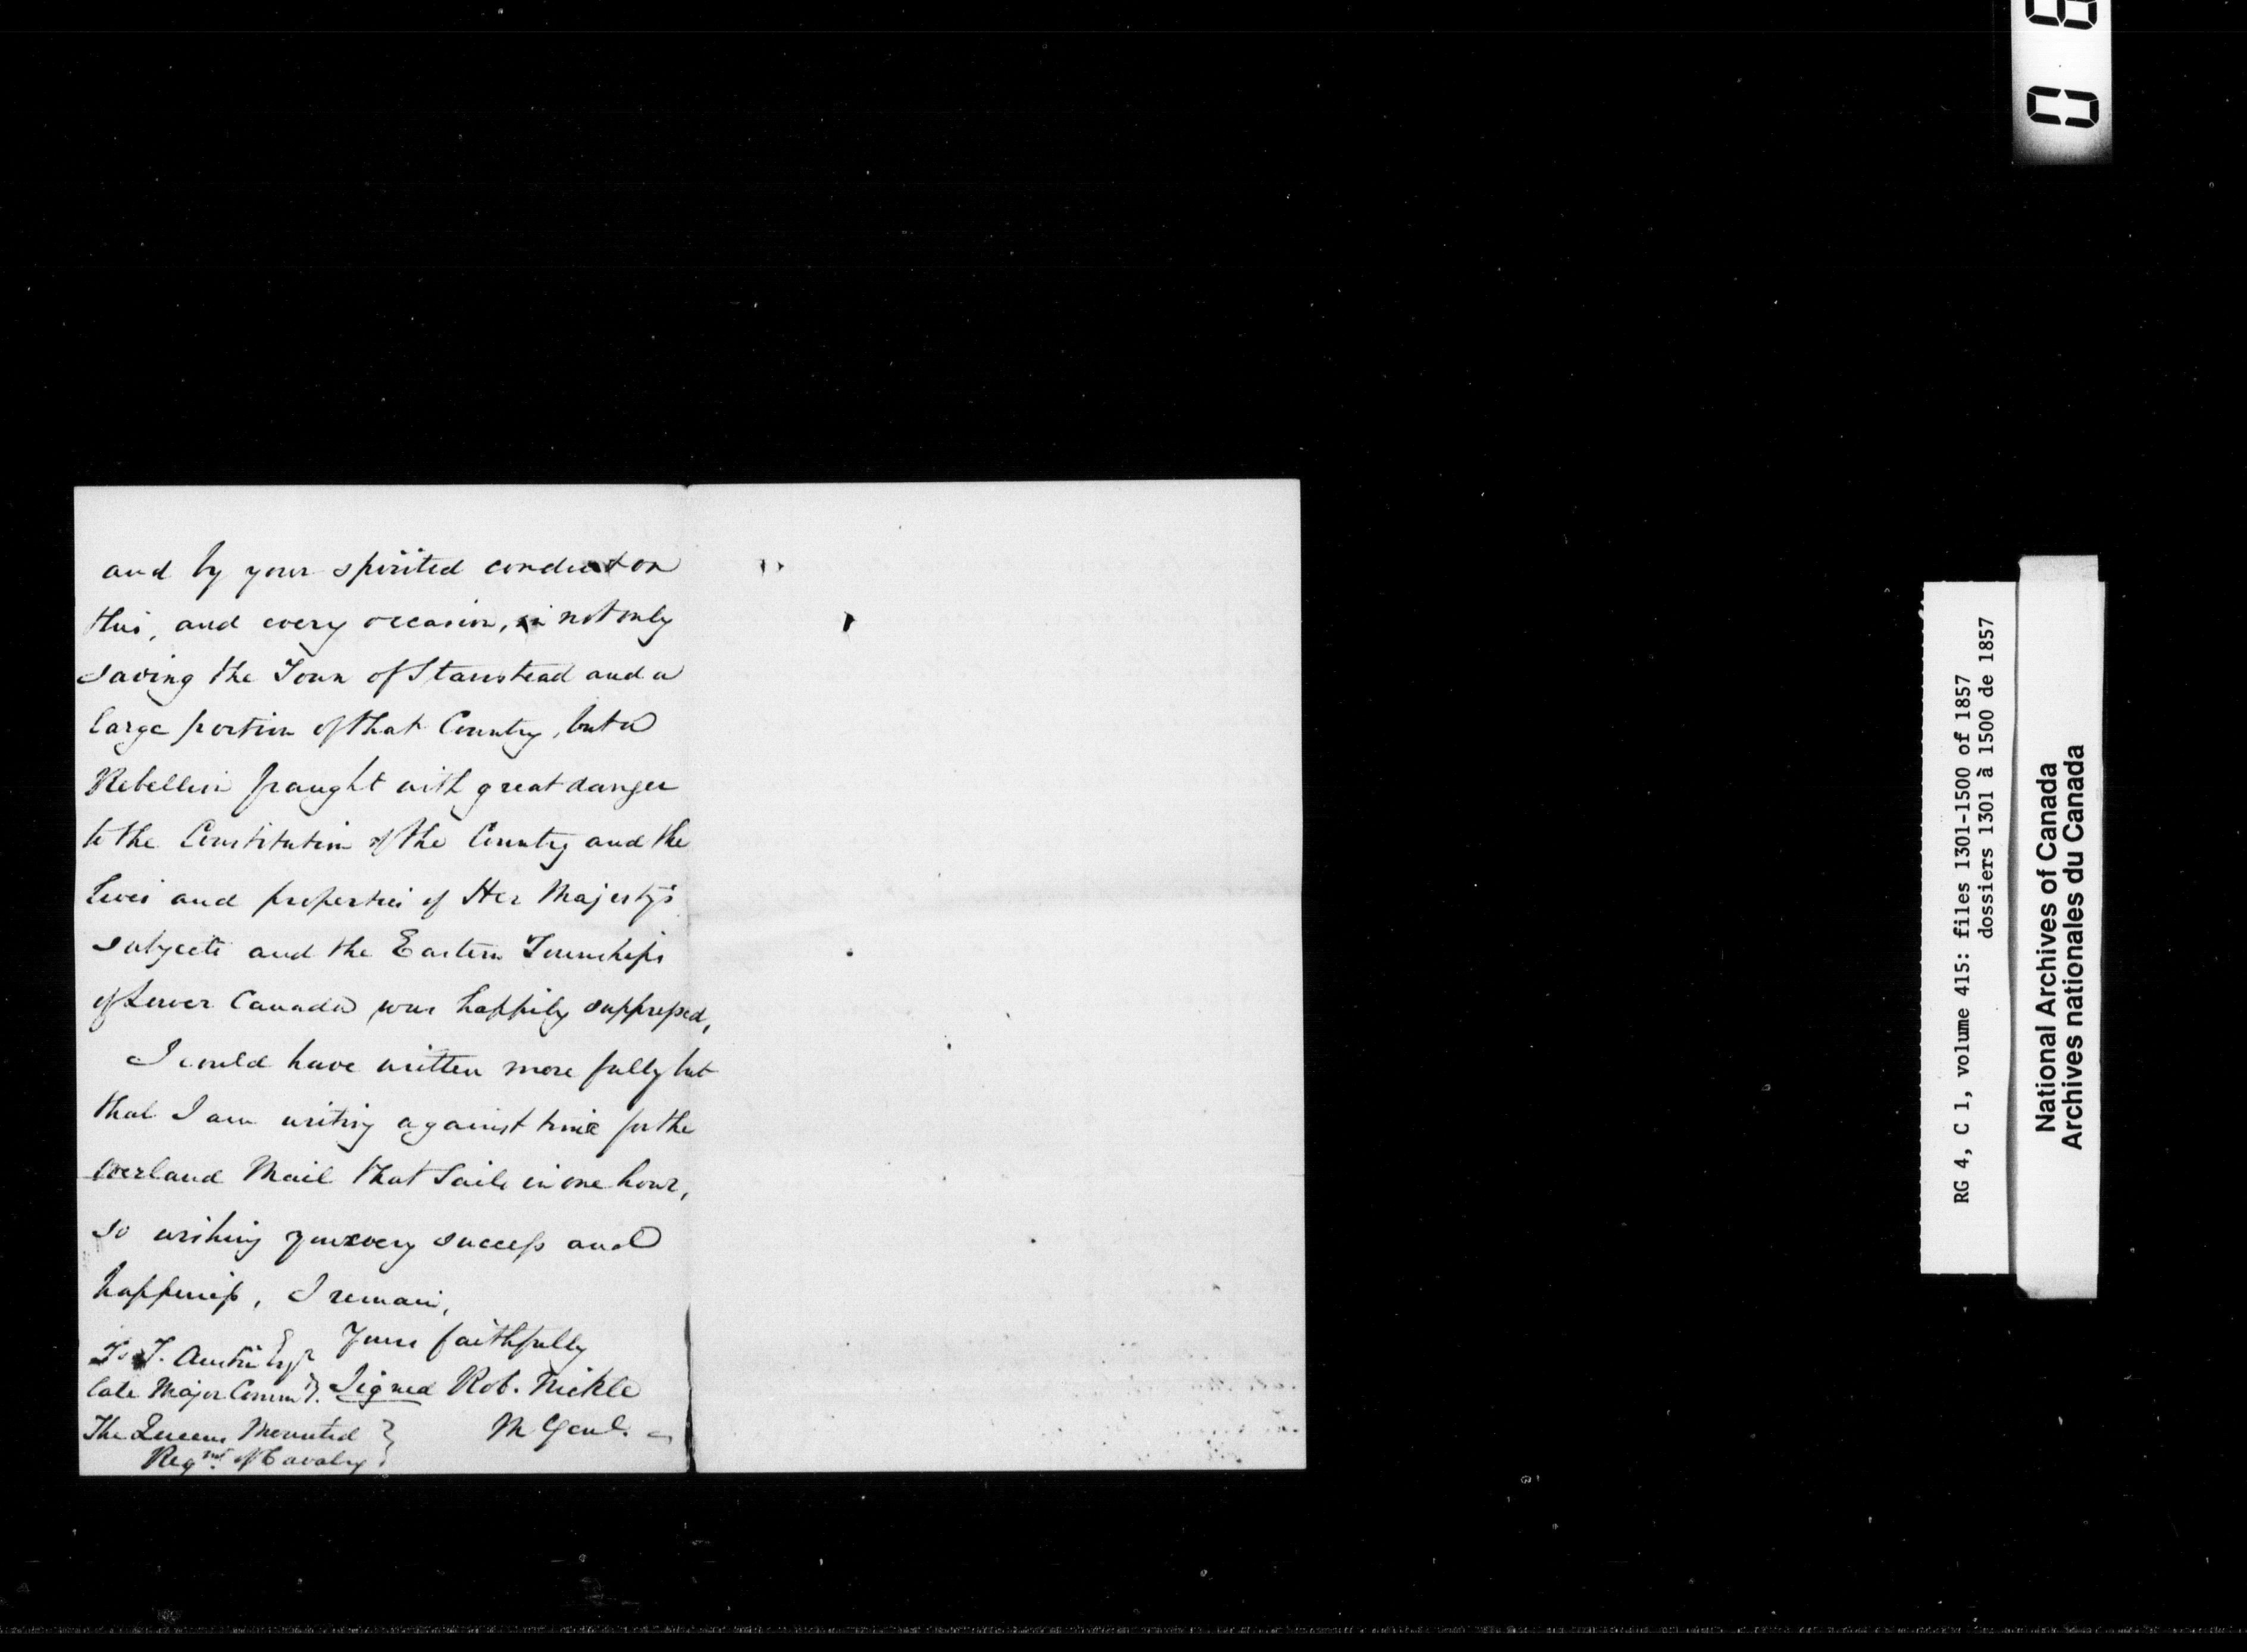 and by your spirited conduct on
this, and every occasion, in not only
saving the Town of Stanstead and a
large portion of that Country, but a
Rebellion fraught with great danger
to the Constitution of the Country and the
lives and properties of Her Majesty's
subjects and the Eastern Townships
of Lower Canada was happily suppressed,
I could have written more fully but
that I am writing against time for the
Overland Mail that sails in one hour,
so wishing you every success and
happiness, I remain,
Yours faithfully
Signed Rob. Nickle
M Genl.
To T. Austin Esqr
late Major Commdg.
The Queens Mounted
Regmt. of Cavalry
08
RG 4, C 1, volume 415: files 1301-1500 of 1857
dossiers 1301 à 1500 de 1857
National Archives of Canada
Archives nationales du Canada